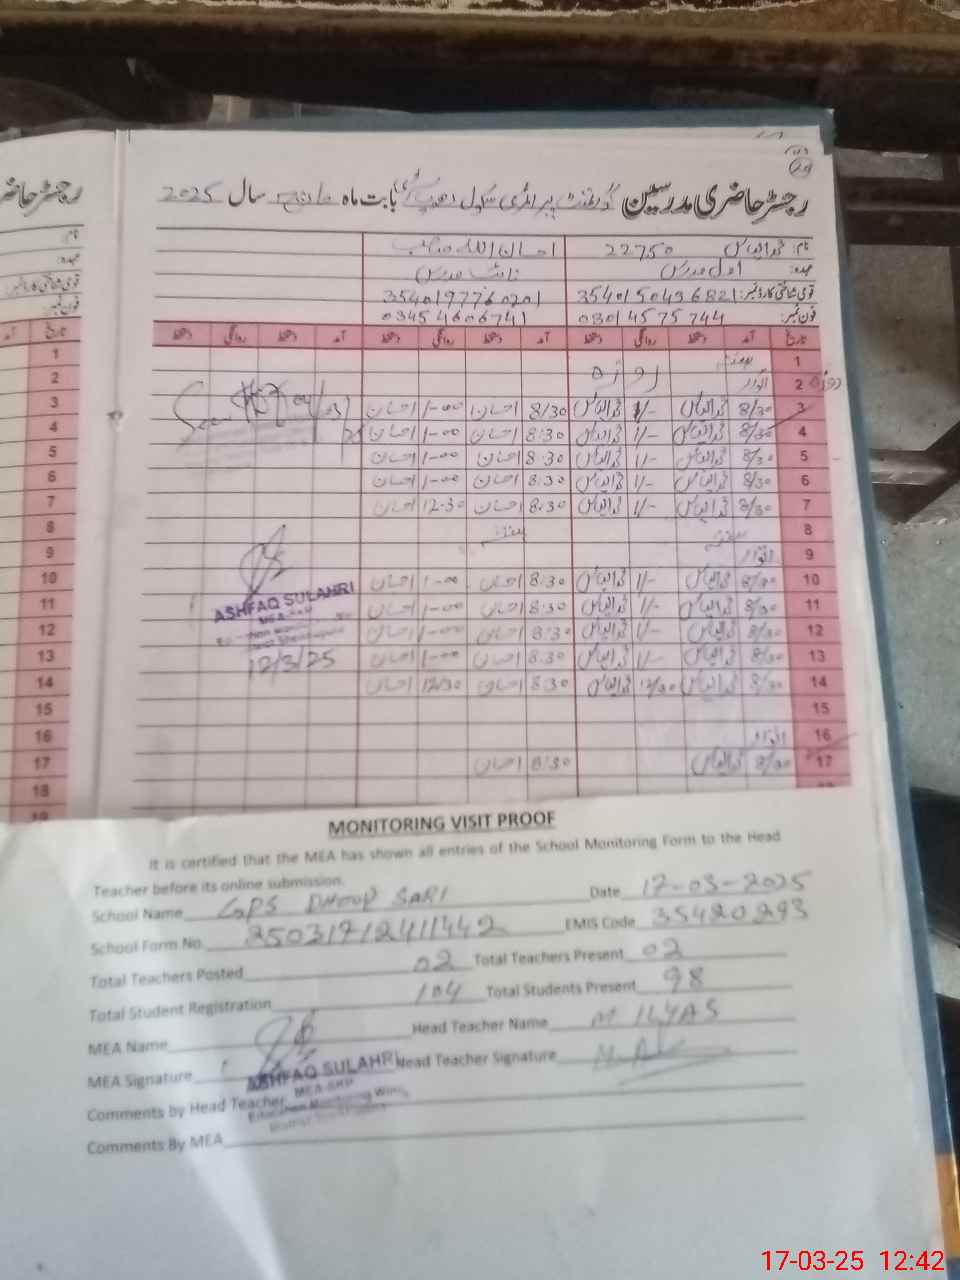 رجسٹر حاضری مدرسین گورنمنٹ پرائمری سکول بابت ماہ مارچ سال 2025
نام: محمد الیاس 22750 احسان اللہ
عہدہ: اول مدرس نائب مدرس
قومی شناختی کارڈ نمبر: 3540150496821 3540197760201
فون نمبر: 03014575744 03454606741
تاریخ آمد دستخط روانگی دستخط آمد دستخط روانگی دستخط آمد دستخط روانگی دستخط
1 ہفتہ
2 اتوار
3 8/30 محمد الیاس 1/- محمد الیاس 8/30 احسان 1-00 احسان
4 8/30 محمد الیاس 1/- محمد الیاس 8:30 احسان 1-00 احسان
5 8/30 محمد الیاس 1/- محمد الیاس 8:30 احسان 1-00 احسان
6 8/30 محمد الیاس 1/- محمد الیاس 8:30 احسان 1-00 احسان
7 8/30 محمد الیاس 1/- محمد الیاس 8:30 احسان 12-30 احسان
8 ہفتہ ہفتہ
9 اتوار
10 8/30 محمد الیاس 1/- محمد الیاس 8:30 احسان 1-00 احسان
11 8/30 محمد الیاس 1/- محمد الیاس 8:30 احسان 1-00 احسان
12 8/30 محمد الیاس 1/- محمد الیاس 8:30 احسان 1-00 احسان
13 8/30 محمد الیاس 1/- محمد الیاس 8:30 احسان 1-00 احسان
14 8/30 محمد الیاس 12/30 محمد الیاس 8:30 احسان 12/30 احسان
15
16 اتوار
17 8/30 محمد الیاس 8:30 احسان
ASHFAQ SULAHRI
12/3/25
رجسٹر
نام:
عہدہ:
قومی شناختی کارڈ نمبر:
فون نمبر:
تاریخ
1
2
3
4
5
6
7
8
9
10
11
12
13
14
15
16
17
18
MONITORING VISIT PROOF
It is certified that the MEA has shown all entries of the School Monitoring Form to the Head
Teacher before its online submission.
School Name GPS DHOOP SARI Date 17-03-2025
School Form No. 25031712411442 EMIS Code 35420293
Total Teachers Posted 02 Total Teachers Present 02
Total Student Registration 104 Total Students Present 98
MEA Name Head Teacher Name M ILYAS
MEA Signature Head Teacher Signature
ASHFAQ SULAHRI
MEA-SKP
Comments by Head Teacher
Education Monitoring Wing
Comments By MEA
17-03-25 12:42